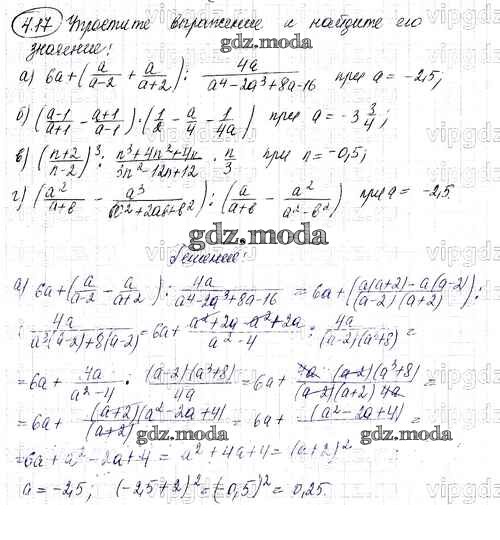 4.17 Упростите выражение и найдите его
значение:
а) 6a+(a/(a-2) + a/(a+2)) : 4a/(a⁴-2a³+8a-16) при a = -2,5;
б) ((a-1)/(a+1) - (a+1)/(a-1))·(1/2 - a/4 - 1/(4a)) при a = -3 3/4;
в) ((n+2)/(n-2))³ : (n³+4n²+4n)/(3n²-12n+12) · n/3 при n = -0,5;
г) (a²/(a+b) - a³/(a²+2ab+b²)) : (a/(a+b) - a²/(a²-b²)) при a = -2,5.
gdz.moda
Решение:
а) 6a+(a/(a-2) - a/(a+2)) : 4a/(a⁴-2a³+8a-16) = 6a+(a(a+2)-a(a-2))/((a-2)(a+2)) :
: 4a/(a³(a-2)+8(a-2)) = 6a+ (a²+2a-a²+2a)/(a²-4) : 4a/((a-2)(a³+8)) =
= 6a+ 4a/(a²-4) · ((a-2)(a³+8))/4a = 6a+ (4a·(a-2)(a³+8))/((a-2)(a+2)4a) =
= 6a+ ((a+2)(a²-2a+4))/(a+2) = 6a+ (a²-2a+4) =
= 6a+a²-2a+4 = a²+4a+4 = (a+2)²
a = -2,5; (-2,5+2)² = (-0,5)² = 0,25.
gdz.moda